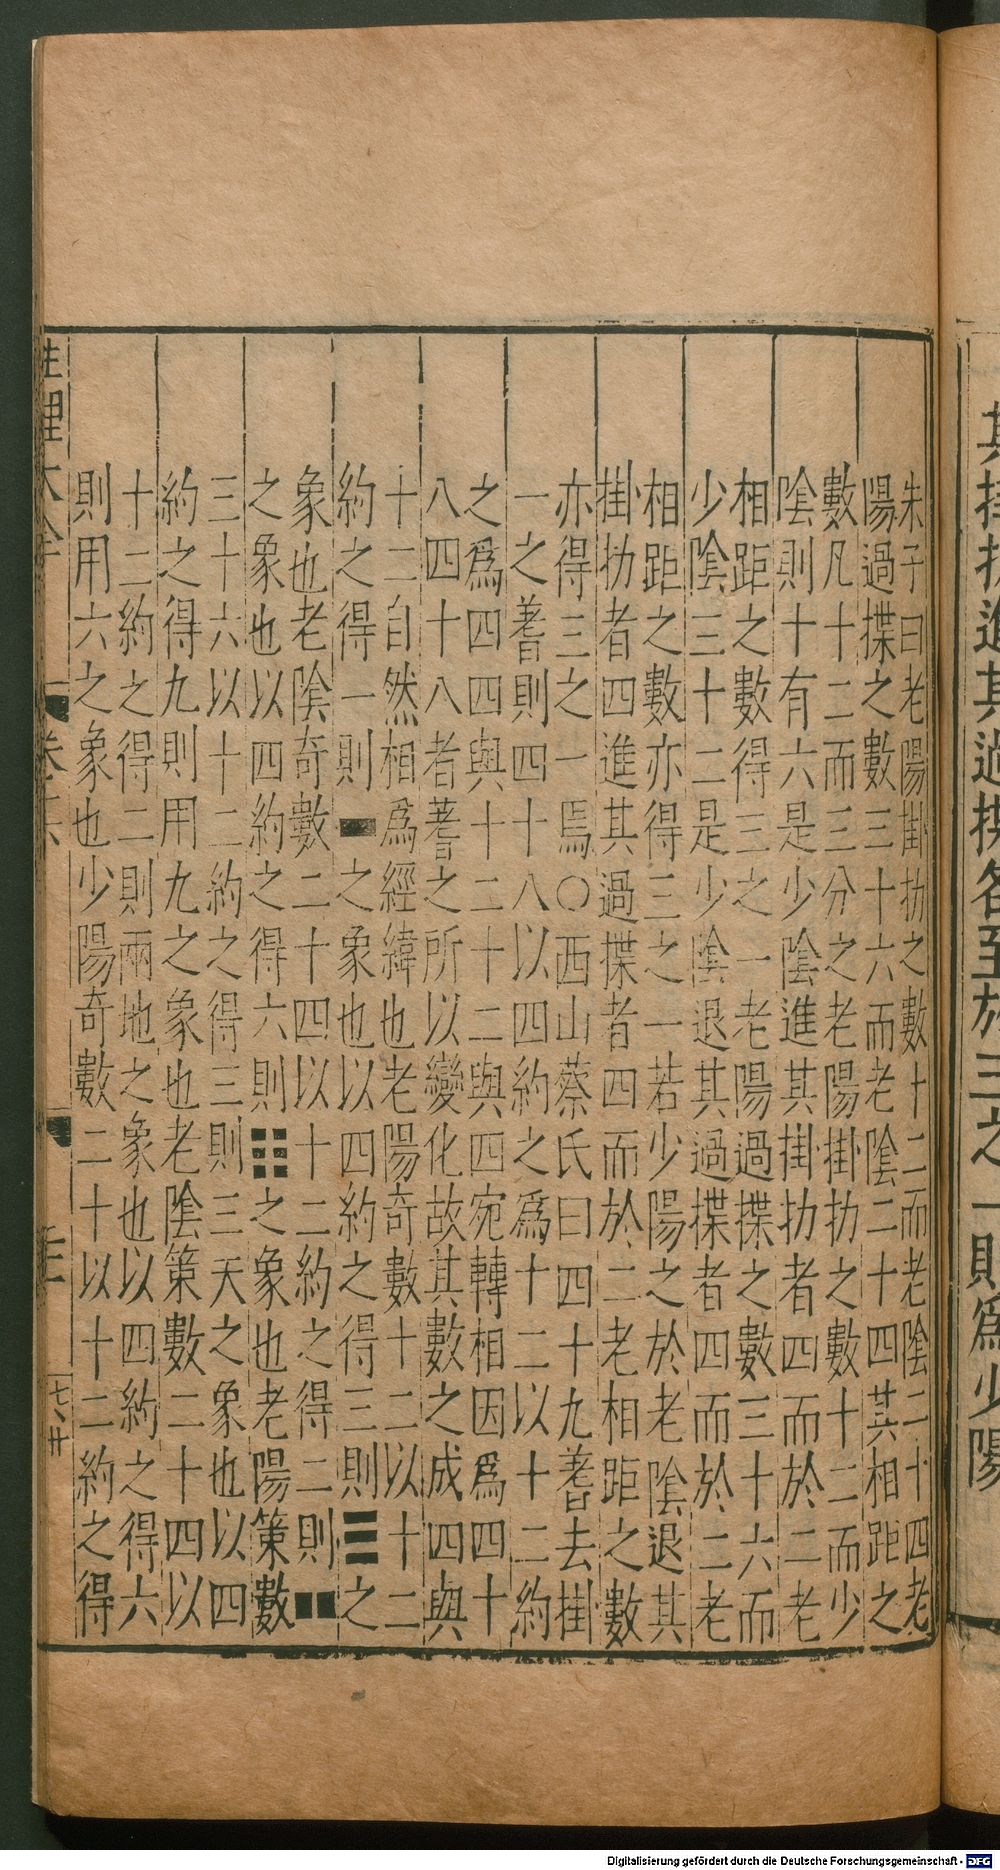 其掛扐進其過揲各至於三之一則爲少陽
朱子曰老陽掛扐之數十二而老陰二十四老
陽過揲之數三十六而老陰二十四其相距之
數凡十二而三分之老陽掛扐之數十二而少
陰則十有六是少陰進其掛扐者四而於二老
相距之數得三之一老陽過揲之數三十六而
少陰三十二是少陰退其過揲者四而於二老
相距之數亦得三之一若少陽之於老陰退其
掛扐者四進其過揲者四而於二老相距之數
亦得三之一焉○西山蔡氏曰四十九蓍去掛
一之蓍則四十八以四約之爲十二以十二約
之爲四四與十二十二與四宛轉相因爲四十
八四十八者蓍之所以變化故其數之成四與
十二自然相爲經緯也老陽奇數十二以十二
約之得一則⚊之象也以四約之得三則☰之
象也老陰奇數二十四以十二約之得二則⚋
之象也以四約之得六則☷之象也老陽策數
三十六以十二約之得三則三天之象也以四
約之得九則用九之象也老陰策數二十四以
十二約之得二則兩地之象也以四約之得六
則用六之象也少陽奇數二十以十二約之得
性理大全
Digitalisierung gefördert durch die Deutsche Forschungsgemeinschaft - DFG